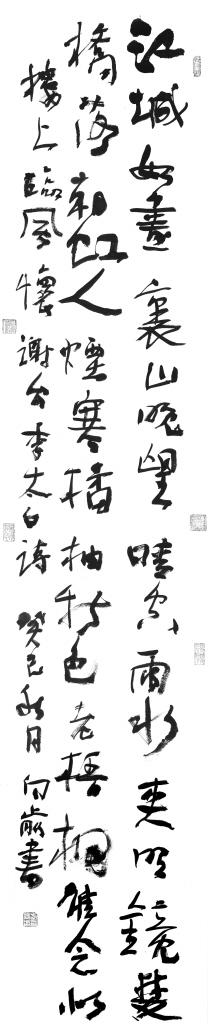 江城如畫裏山晚望晴空兩水夾明鏡雙
橋落彩虹人煙寒橘柚秋色老梧桐誰念北
樓上臨風懷謝公李太白詩癸巳秋月向書